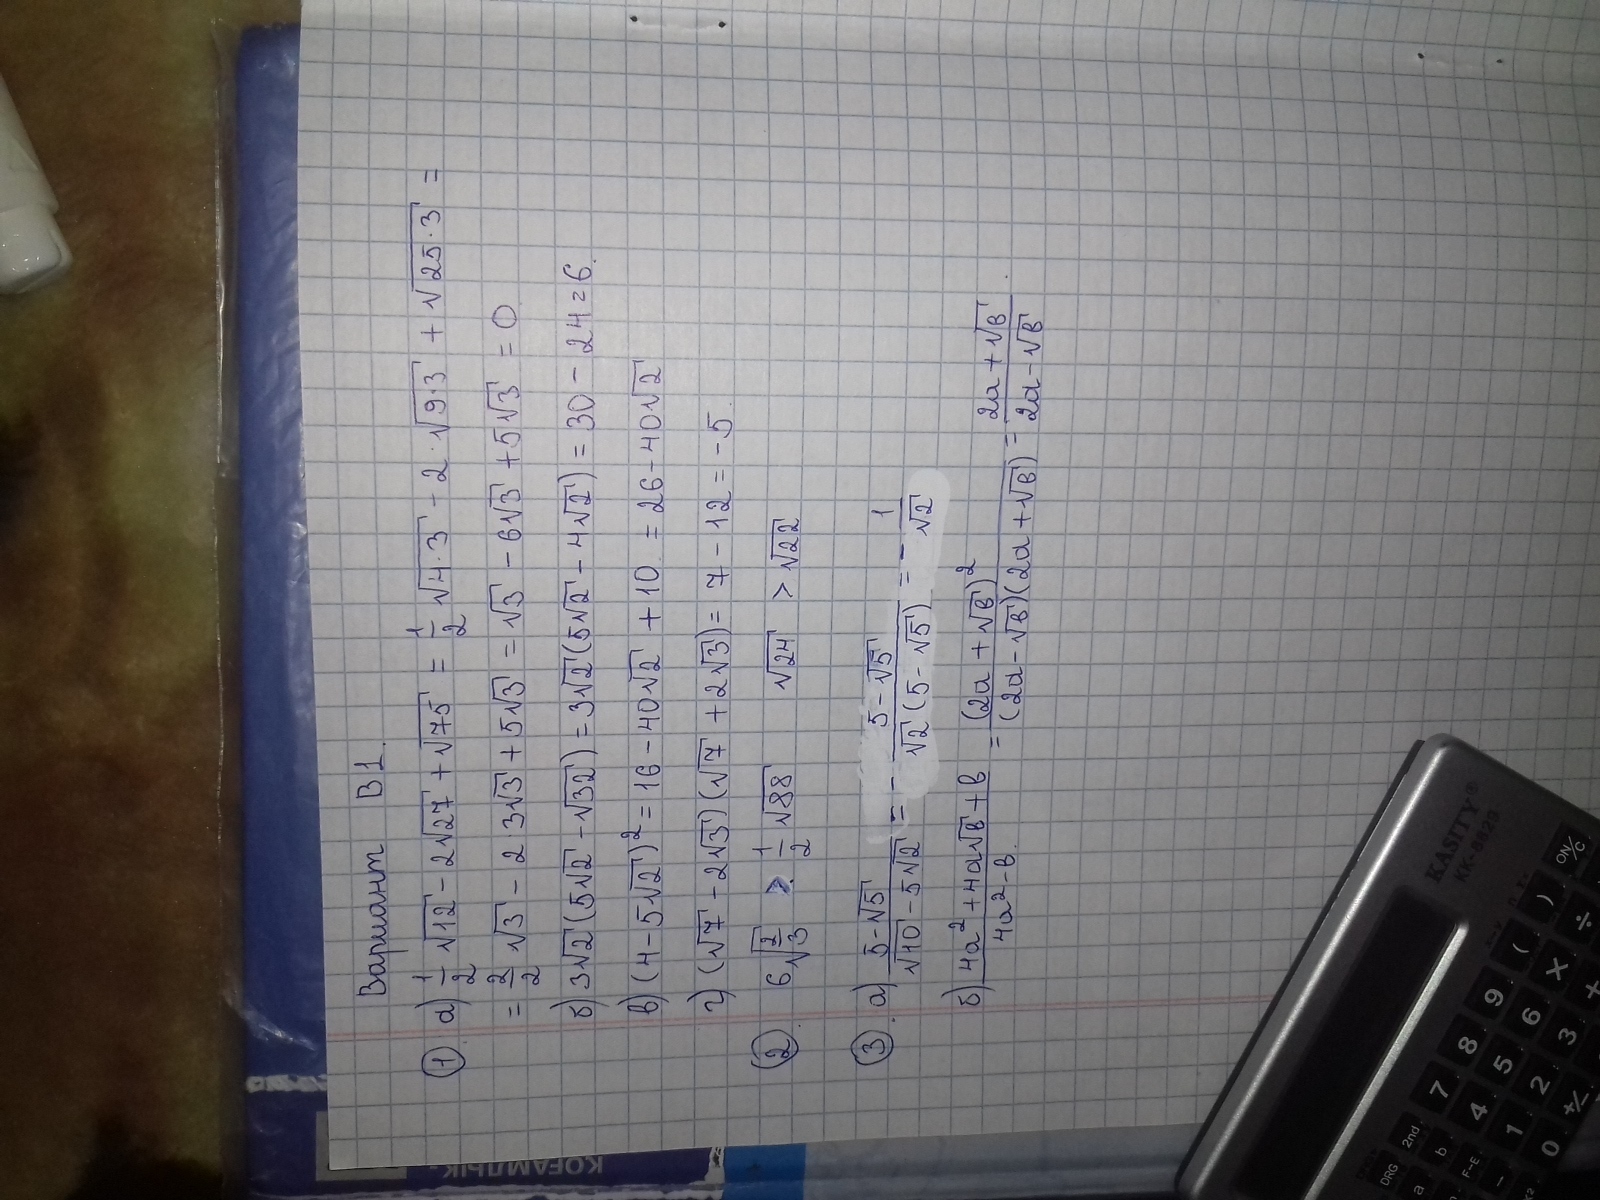 Вариант В1.
① а) 1/2 √12 - 2√27 + √75 = 1/2 √4·3 - 2·√9·3 + √25·3 =
= 2/2 √3 - 2·3√3 + 5√3 = √3 - 6√3 + 5√3 = 0
б) 3√2(5√2 - √32) = 3√2(5√2 - 4√2) = 30 - 24 = 6.
в) (4 - 5√2)² = 16 - 40√2 + 10 = 26 - 40√2
г) (√7 - 2√3)(√7 + 2√3) = 7 - 12 = -5.
②. 6√2/3 > 1/2 √88 √24 > √22
③. а) (5-√5)/(√10 - 5√2) = - (5-√5)/(√2(5-√5)) = - 1/√2
б) (4a² + 4a√в + в)/(4a² - в) = (2a + √в)²/((2a - √в)(2a + √в)) = (2a + √в)/(2a - √в).
ҚОҒАМДЫҚ -
KASHTY®
KK-8929
ON/C
DRG
2nd
( )
a b
F-E
7 8 9
÷
4 5 6 X
1 2 3 +
0 +/-